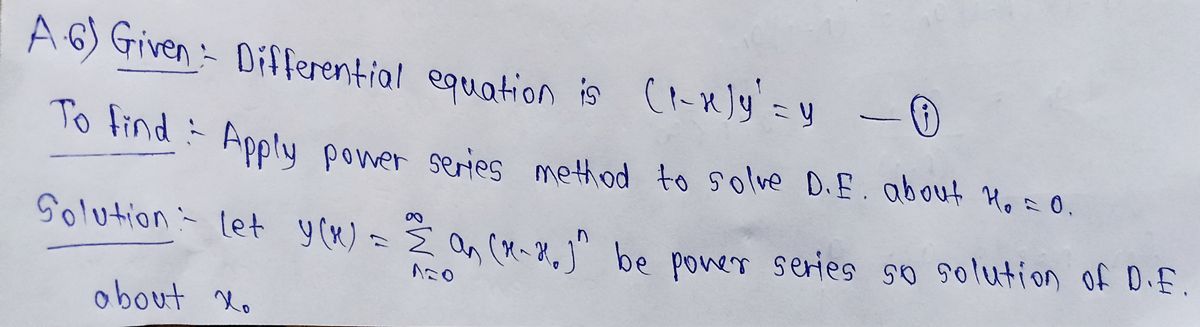 A.6) Given :- Differential equation is (1-x)y' = y — ①
To find :- Apply power series method to solve D.E. about x₀ = 0.
Solution :- let y(x) = ∞ Σ n=0 an (x-x₀)ⁿ be power series so solution of D.E.
about x₀